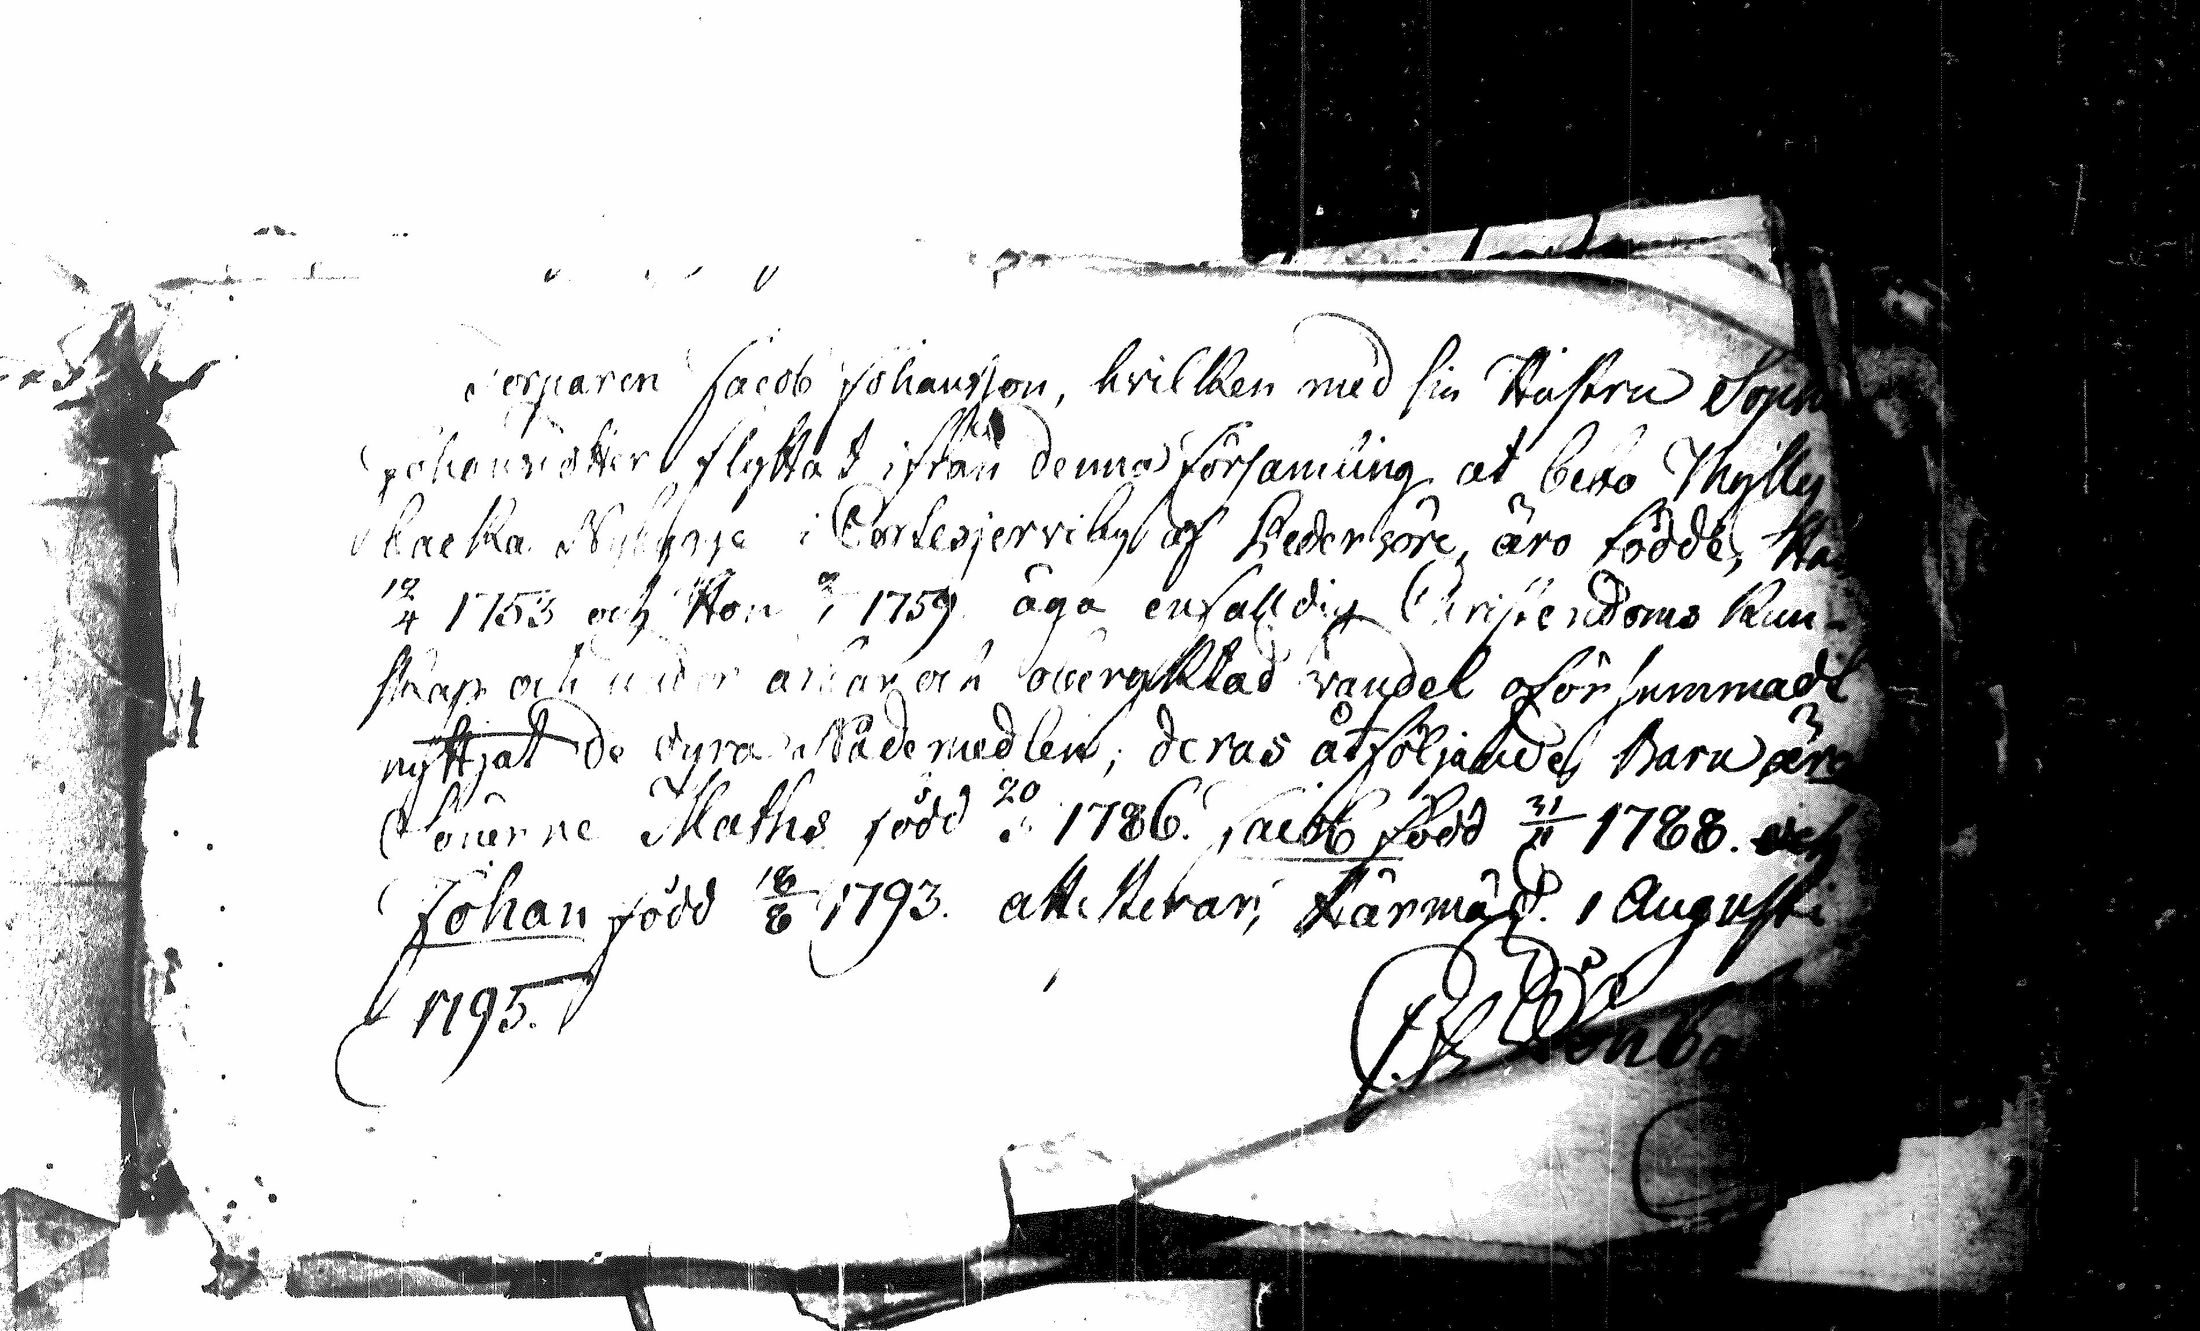 Torparen Jacob Johansson, hvilken med sin Hustru Soph
Johansdotter flyttat ifrån denna församling at beto Thylly
backa Nybygge i Cortesjerviby af Pedersöre, äro födde, Han
12/4 1753 och Hon 1759. äga enfalldig Christendoms kun-
skap och under ärbar och oberycktad vandel oförsummadt
nyttjat de dyra Nådemedlen; deras åtföljande Barn äro
Sönerne Maths född 20 1786. Jacob född 31/11 1788. och
Johan född 18/8 1793. attesterar, Kärmäd. 1 Augusti
1795.